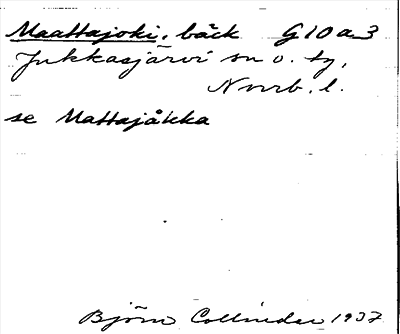 Maattajoki, bäck G10a3
Jukkasjärvi sn o. tg,
Norrb. l.
se Mattajåkka
Björn Collinder 1937